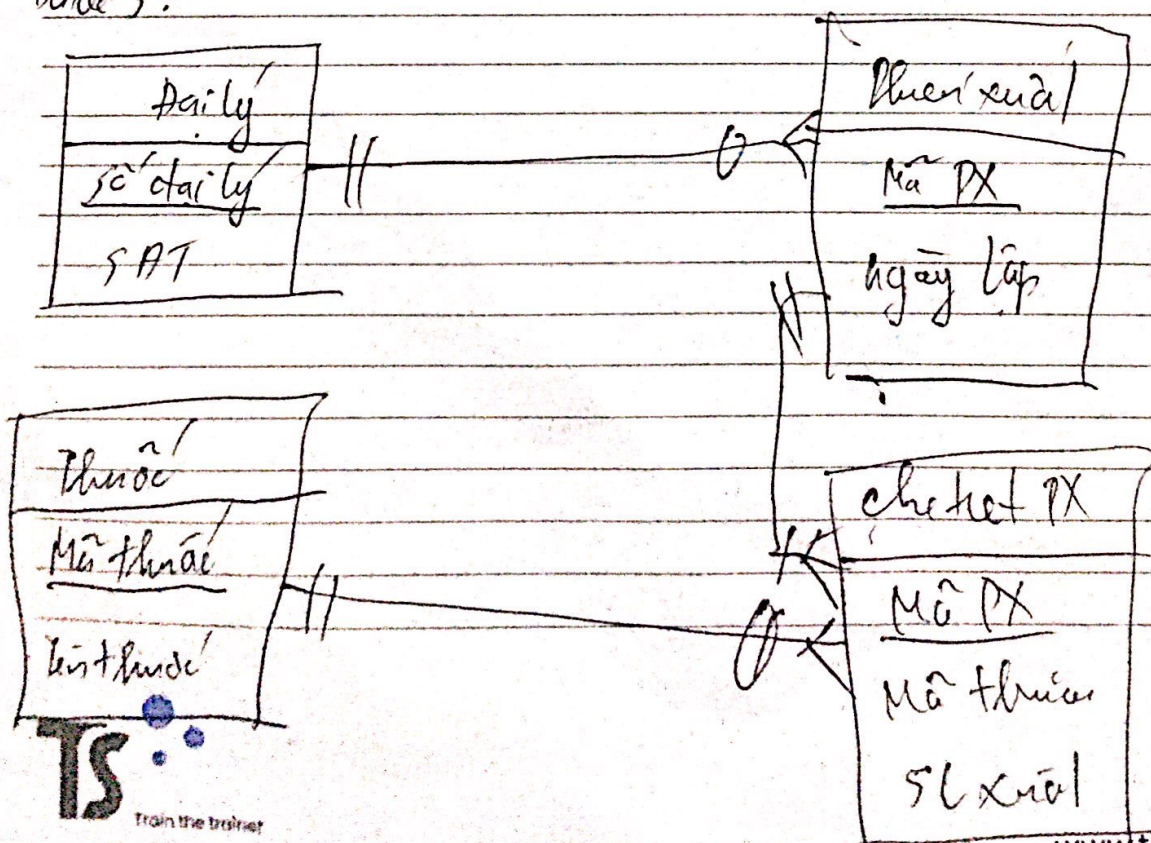 Đại lý
Số đại lý
SĐT
Phiếu xuất
Mã PX
ngày lập
Thuốc
Mã thuốc
tên thuốc
chi tiết PX
Mã PX
Mã thuốc
SL xuất
TS
Train the trainer